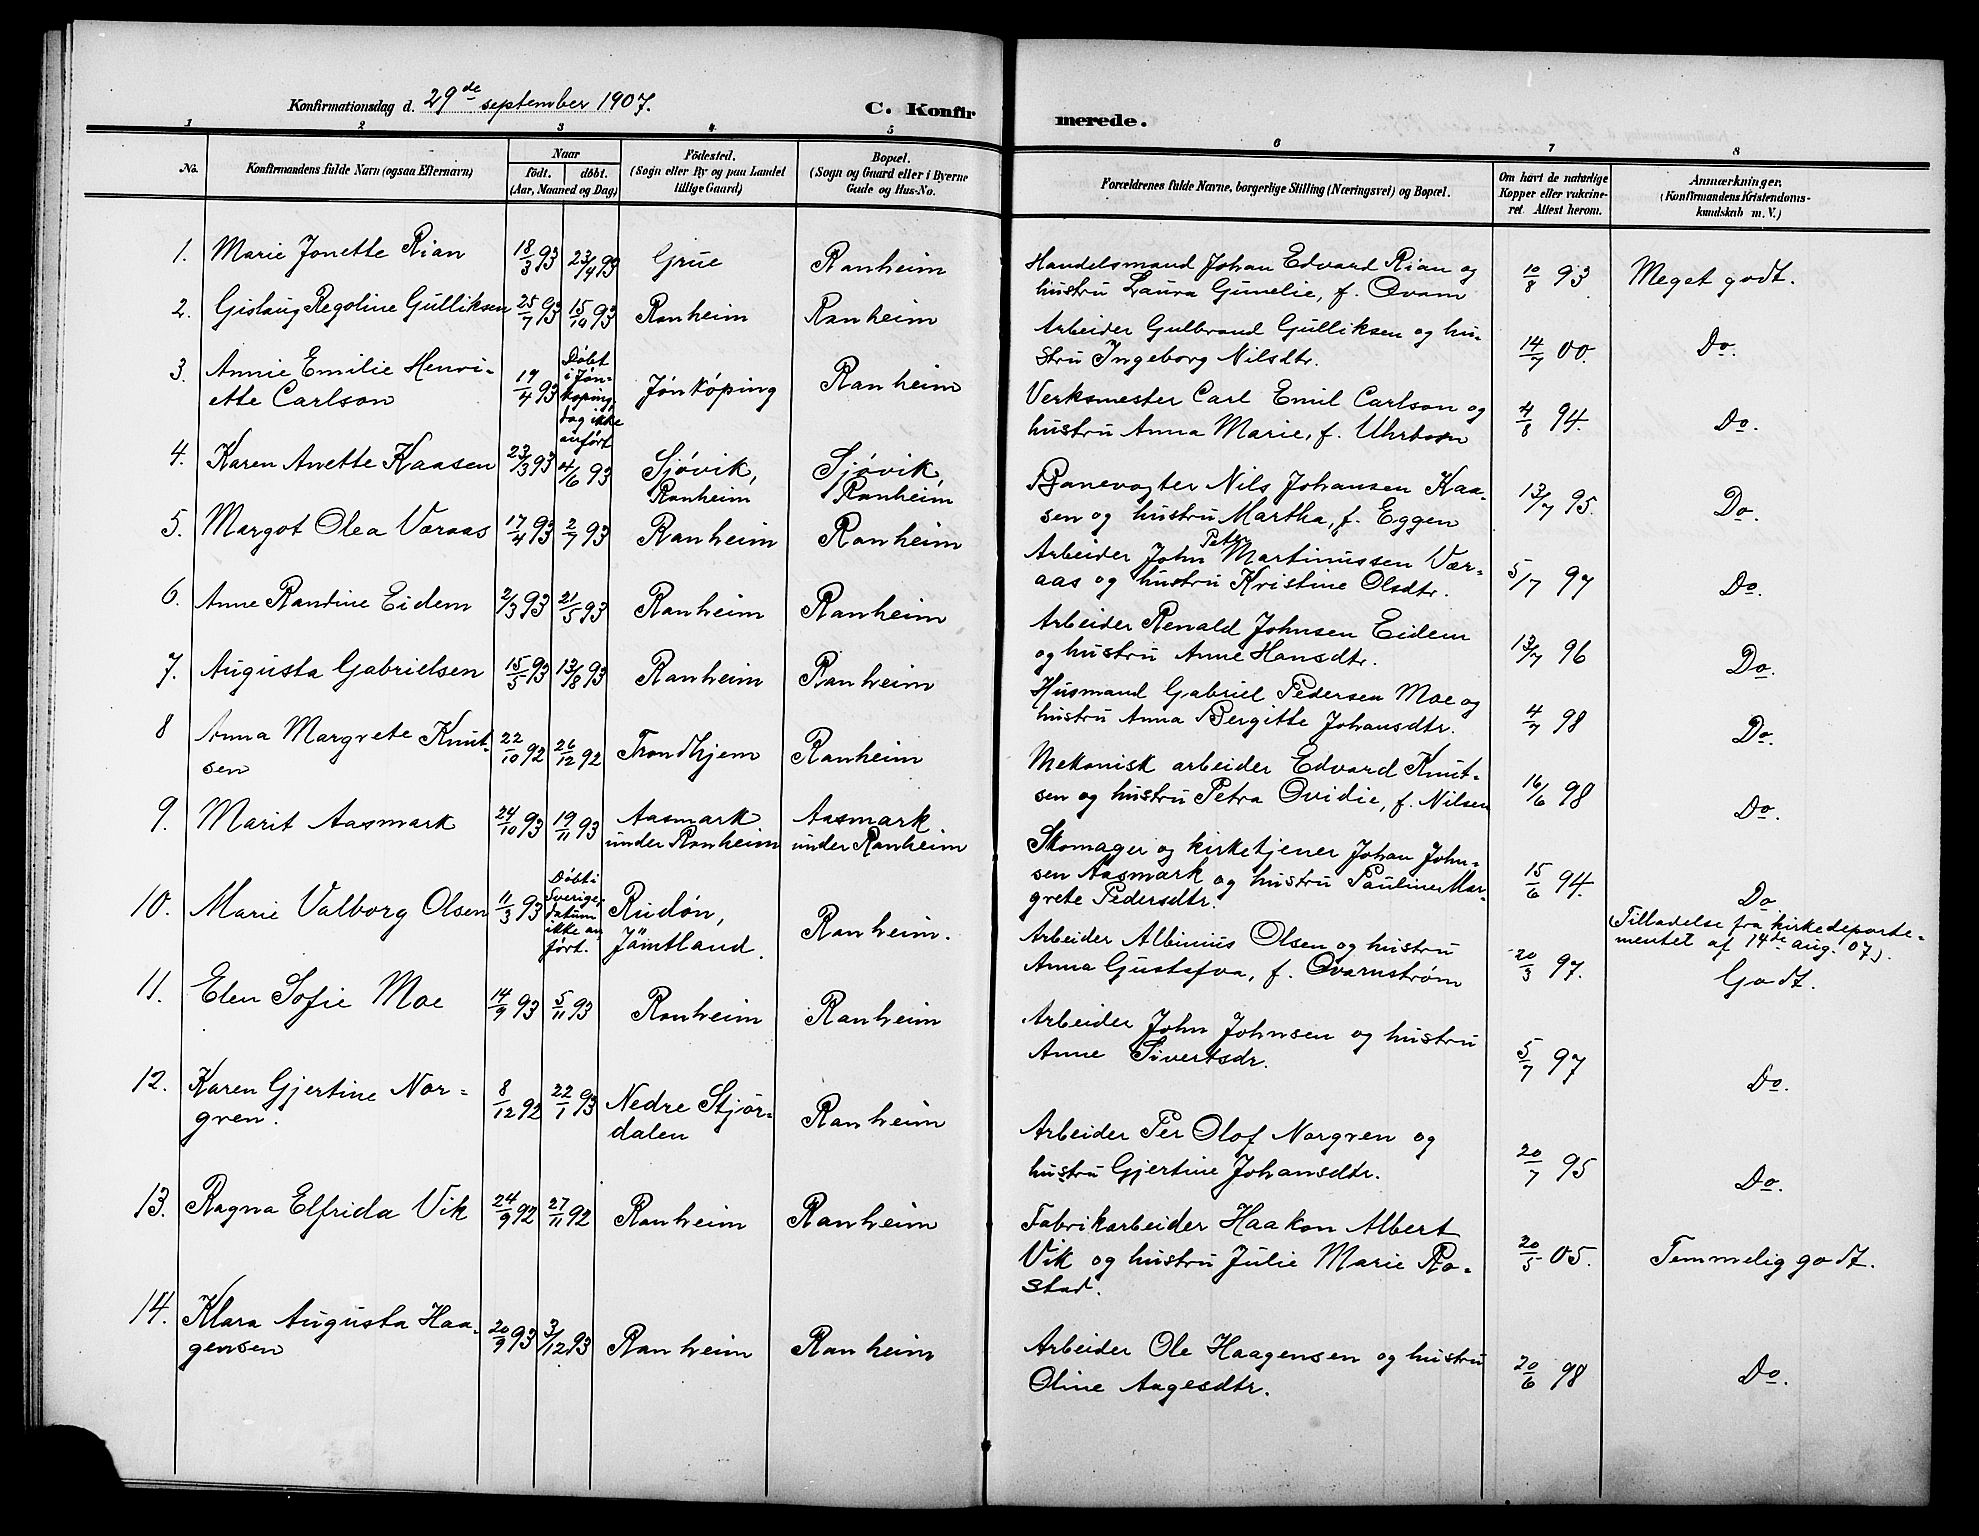 Konfirmationsdag d. 29de september 1907.
C. Konfirmerede.
1 2 3 4 5 6 7 8
No.
Konfirmandens fulde Navn (ogsaa Efternavn)
Naar
født. døbt.
(Aar, Maaned og Dag)
Födested.
(Sogn eller By og paa Landet
tillige Gaard)
Bopæl.
(Sogn og Gaard eller i Byerne
Gade og Hus-No.
Forældrenes fulde Navne, borgerlige Stilling (Næringsvei) og Bopæl.
Om havt de naturlige
Kopper eller vakcine-
ret. Attest herom.
Anmærkninger.
(Konfirmandens Kristendoms-
kundskab m. V.)
1. Marie Jonette Rian 18/3 93 23/4 93 Grue Ranheim
Handelsmand Johan Edvard Rian og
hustru Laura Gunelie, f. Qvam 10/8 93 Meget godt.
2. Gislaug Regoline Gulliksen 25/7 93 15/10 93 Ranheim Ranheim
Arbeider Gulbrand Gulliksen og hu-
stru Ingeborg Nilsdtr. 14/7 00. Do.
3. Annie Emilie Henri-
ette Carlson 19/4 93
Døbt
i Jøn-
köping,
dag ikke
anført
Jönköping Ranheim
Verksmester Carl Emil Carlson og
hustru Anna Marie, f. Uhrbom 4/8 94. Do.
4. Karen Anette Kaasen 23/3 93 4/6 93 Sjövik, Sjövik,
Ranheim Ranheim
Banevogter Nils Johansen Kaa-
sen og hustru Martha, f. Eggen 13/7 95. Do.
5. Margot Olea Væraas 17/4 93 2/7 93 Ranheim Ranheim
Arbeider John Peter Martinussen Vær-
aas og hustru Kristine Olsdtr. 5/7 97 Do.
6. Anne Randine Eidem 2/3 93 21/5 93 Ranheim Ranheim
Arbeider Renald Johnsen Eidem
og hustru Anne Hansdtr. 13/7 96 Do.
7. Augusta Gabrielsen 15/5 93 13/8 93 Ranheim Ranheim
Husmand Gabriel Pedersen Moe og
hustru Anna Bergitte Johansdtr. 4/7 98 Do.
8 Anna Margrete Knut-
sen 22/10 92 26/12 92 Trondhjem Ranheim
Mekanisk arbeider Edvard Knut-
sen og hustru Petra Ovidie, f. Nilsen 16/6 98 Do.
9. Marit Aasmark 24/10 93 19/11 93 Aasmark Aasmark
under Ranheim under Ranheim
Skomager og kirketjener Johan John-
sen Aasmark og hustru Pauline Mar-
grete Pedersdtr. 15/6 94. Do.
10. Marie Valborg Olsen 11/3 93
Döbt i
Sverige,
datum
ikke an
ført.
Rüdön,
Jämtland. Ranheim.
Arbeider Albinius Olsen og hustru
Anna Gustafva, f. Qvarnström 20/3 97.
(Tilladelse fra kirkedeparte-
mentet af 14de aug. 07).
Godt.
11. Elen Sofie Moe 14/9 93 5/11 93 Ranheim Ranheim
Arbeider John Johnsen og hustru
Anne Sivertsdr. 5/7 97 Do.
12. Karen Gjertine Nor-
gren. 8/12 92 22/1 93 Nedre Stjör-
dalen Ranheim
Arbeider Per Olof Norgren og
hustru Gjertine Johansdtr. 20/7 95 Do.
13. Ragna Elfrida Vik 24/9 92 27/11 92 Ranheim Ranheim
Fabrikarbeider Haakon Albert
Vik og hustru Julie Marie Ro-
stad. 20/5 05. Temmelig godt.
14. Klara Augusta Haa-
gensen 20/9 93 3/12 93 Ranheim Ranheim
Arbeider Ole Haagensen og hustru
Oline Aagesdtr. 20/6 98 Do.